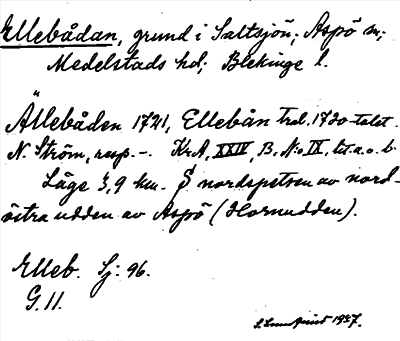 Ellebådan, grund i Saltsjön; Aspö sn;
Medelstads hd; Blekinge l.
Ällebåden 1721, Ellebån trol. 1780-talet.
N. Ström, resp. -. KrA, XXIV, B, N:o IX, lit. a. o. b.
Läge 3,9 km. S nordspetsen av nord-
östra udden av Aspö (Hornudden).
Elleb. Sj: 96.
G. 11.
1937.